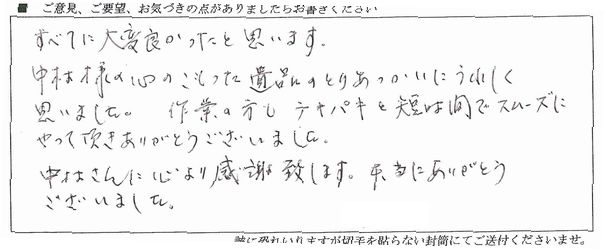 ■ ご意見、ご要望、お気づきの点がありましたらお書きください
すべてに大変良かったと思います。
中村様の心のこもった遺品のとりあつかいにうれしく
思いました。 作業の方も テキパキと短時間でスムーズに
やって頂きありがとうございました。
中村さんに心より感謝致します。本当にありがとう
ございました。
誠に恐れいりますが切手を貼らない封筒にてご送付くださいませ。